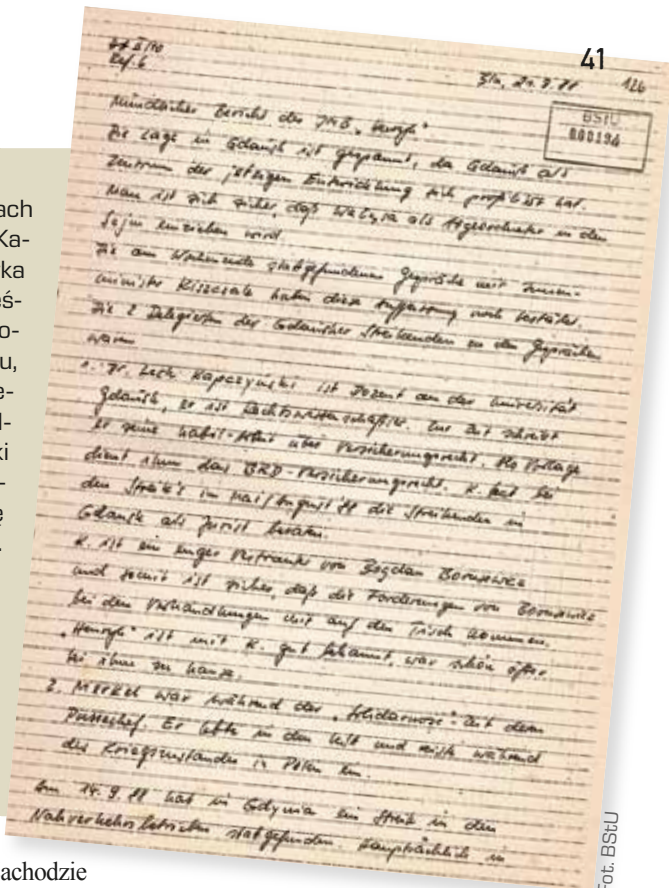 41
126
BStU
000134
Bln, 20.9.88
Mündlicher Bericht des IMB "Henryk"
Die Lage in Gdansk ist gespannt, da Gdansk als
Zentrum der jetzigen Entwicklung sich profiliert hat.
Man ist sich sicher, daß Walesa als Abgeordneter in den
Sejm einziehen wird.
Die am Wochenende stattgefundenen Gespräche mit Innen-
minister Kiszczak haben diese Auffassung noch bestätigt.
Die 2 Delegierten der Gdansker Streikenden zu den Gesprächen
waren
1. Dr. Lech Kapczyński ist Dozent an der Universität
Gdansk, er ist Rechtswissenschaftler. Zur Zeit schreibt
er seine Habil-Arbeit über Versicherungsrecht. Als Vorlage
dient ihm das BRD-Versicherungsrecht. K. hat bei
den Streik's im Mai/August 88 die Streikenden in
Gdansk als Jurist beraten.
K. ist ein enger Vertrauter von Bogdan Borusewicz
und somit ist sicher, daß die Forderungen von Borusewicz
bei den Verhandlungen mit auf den Tisch kommen.
"Henryk" ist mit K. gut bekannt, war schon öfter
bei ihm zu Hause.
2. Merkel war während der "Solidarnosc"-Zeit deren
Pressechef. Er lebte in den und reiste während
des Kriegszustandes in Polen ein.
Am 14.9.88 hat in Gdynia ein Streik in den
Nahverkehrsbetrieben stattgefunden. Hauptsächlich in
ach
Ka-
ka
eś-
o-
u,
e-
l-
ki
-
ę
.
achodzie
Fot. BStU